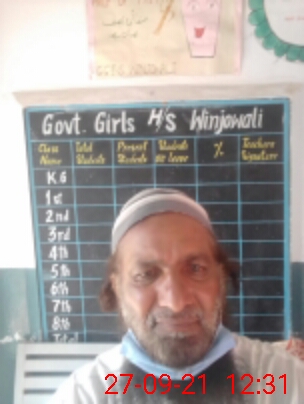 Govt. Girls H/S Winjowali
Class Name Total Students Present Students Students on leave % Teachers Signature
KG
1st
2nd
3rd
4th
5th
6th
7th
8th
Total
27-09-21 12:31